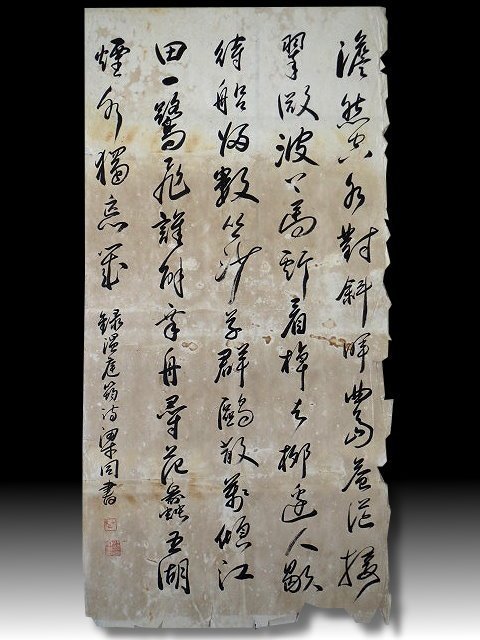 澹然空水對斜暉曲島蒼茫接
翠微波上馬嘶看棹去柳邊人歇
待船歸數叢沙草群鷗散萬頃江
田一鷺飛誰解乘舟尋范蠡五湖
煙水獨忘機 錄溫庭筠詩 梁同書